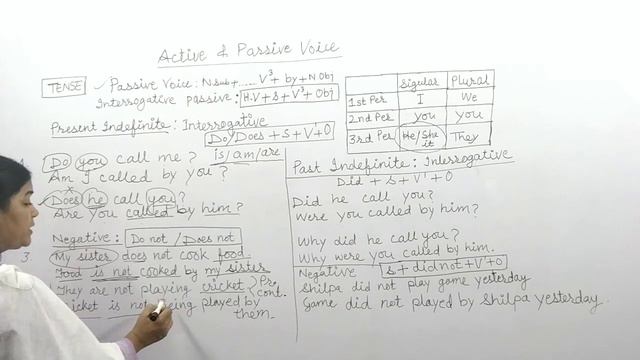 Active & Passive Voice
TENSE
Passive Voice: Nsub+.....V³+ by+N Obj
Interrogative passive: H.V+S+V³+Obj
Sigular Plural
1st Per I We
2nd Per you you
3rd Per He/She it They
Present Indefinite: Interrogative
Do/Does+S+V¹+O
Do you call me? is/am/are
Am I called by you?
Does he call you?
Are you called by him?
Negative: Do not/Does not
3. My sister does not cook food.
Food is not cooked by my sister
They are not playing cricket } Pre cont.
Cricket is not being played by them.
Past Indefinite: Interrogative
Did + S + V¹ + O
Did he call you?
Were you called by him?
Why did he call you?
Why were you called by him.
Negative S+did not+V¹+O
Shilpa did not play game yesterday
Game did not played by Shilpa yesterday.